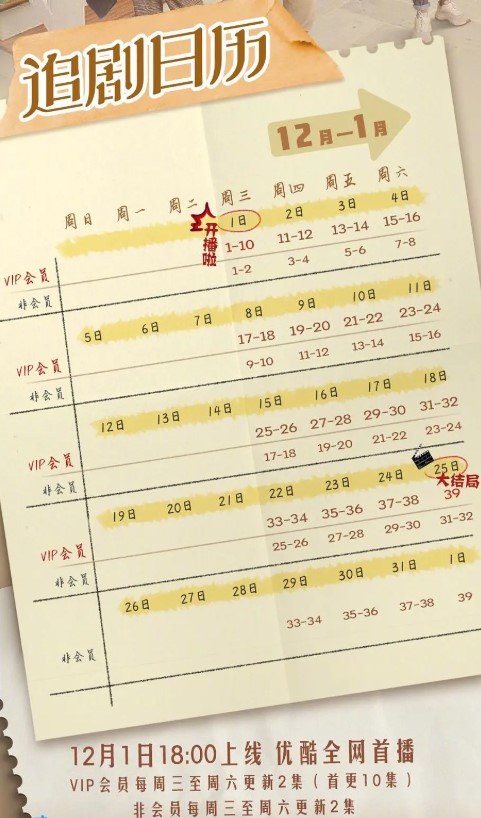 追剧日历
12月—1月
周日 周一 周二 周三 周四 周五 周六
1日 2日 3日 4日
开播啦
VIP会员 1-10 11-12 13-14 15-16
非会员 1-2 3-4 5-6 7-8
5日 6日 7日 8日 9日 10日 11日
VIP会员 17-18 19-20 21-22 23-24
非会员 9-10 11-12 13-14 15-16
12日 13日 14日 15日 16日 17日 18日
VIP会员 25-26 27-28 29-30 31-32
非会员 17-18 19-20 21-22 23-24
19日 20日 21日 22日 23日 24日 25日
大结局
VIP会员 33-34 35-36 37-38 39
非会员 25-26 27-28 29-30 31-32
26日 27日 28日 29日 30日 31日 1日
非会员 33-34 35-36 37-38 39
12月1日18:00上线 优酷全网首播
VIP会员每周三至周六更新2集（首更10集）
非会员每周三至周六更新2集